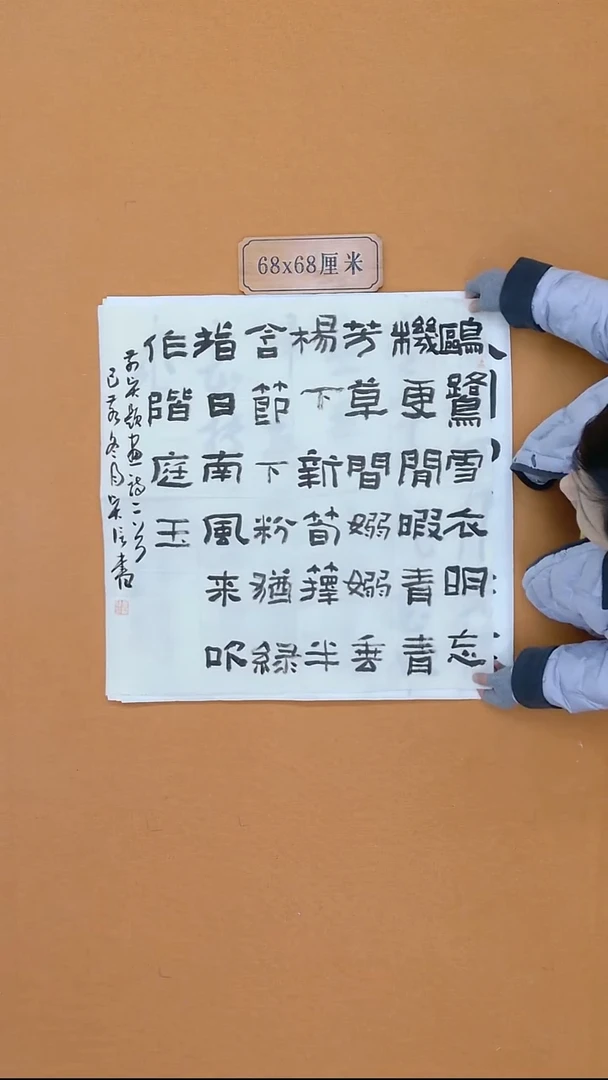 68x68厘米
鷗鷺雪衣明忘
機更閒暇青青
芳草間嫋嫋垂
楊下新筍蘀半
含節下粉猶綠
指日南風来吹
作階庭玉
題畫詩二首
己亥冬月書